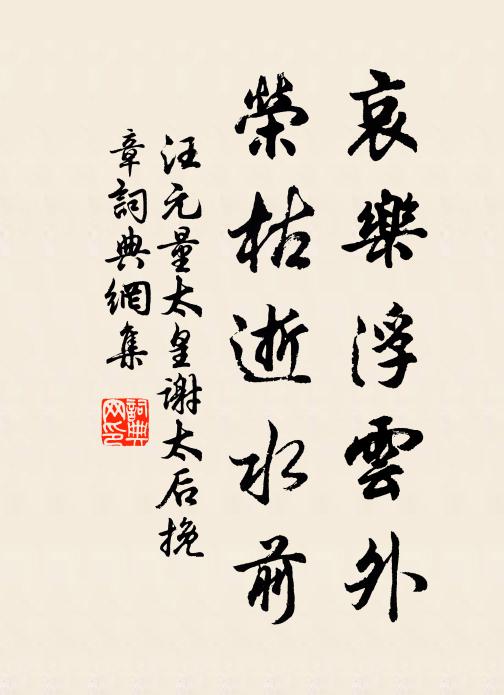 哀樂浮雲外
榮枯逝水前
汪元量太皇謝太后挽
章詞典網集
詞典
网印